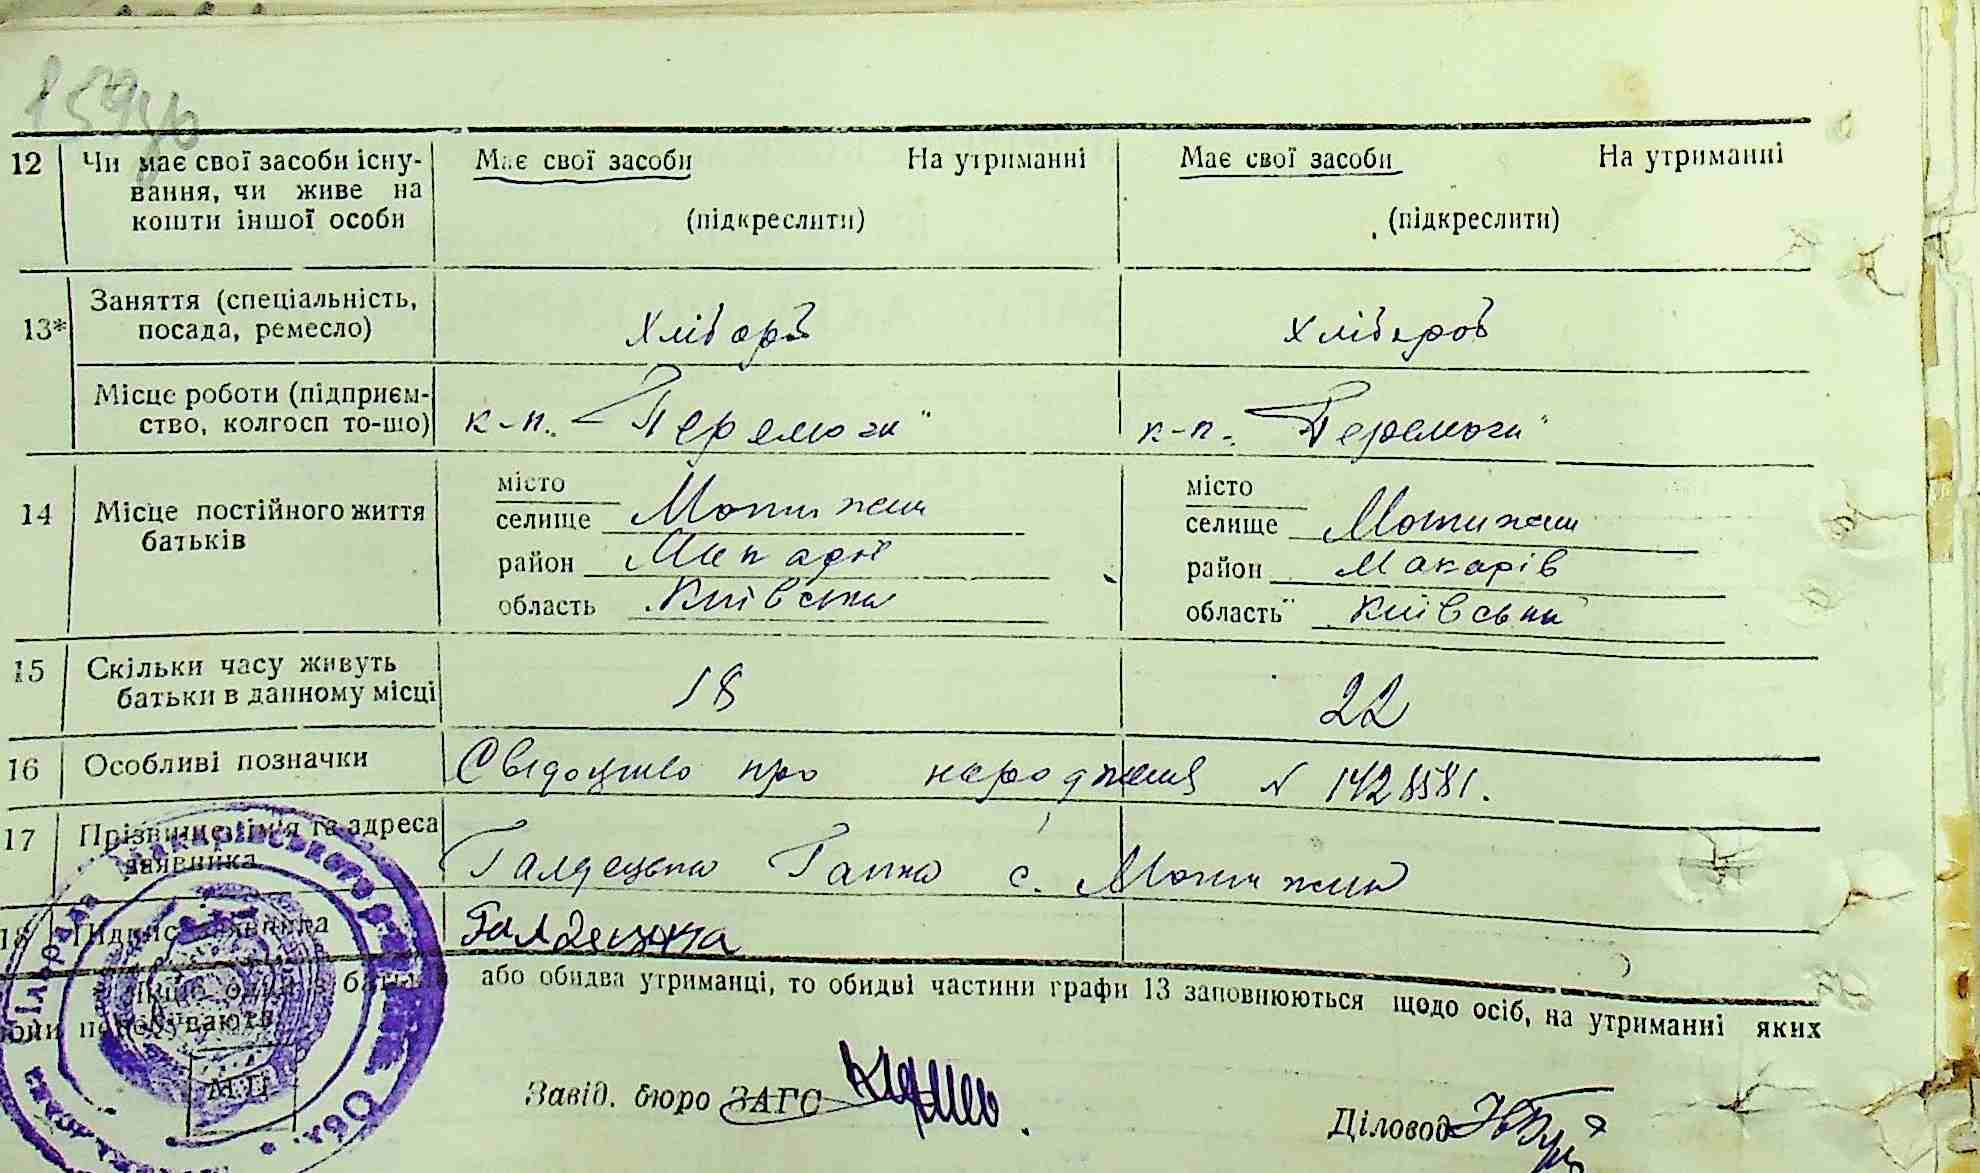 159 уб
12 Чи має свої засоби існу-
вання, чи живе на
кошти іншої особи
Має свої засоби На утриманні
(підкреслити)
Має свої засоби На утриманні
(підкреслити)
13* Заняття (спеціальність,
посада, ремесло)
Хлібороб
Хлібороб
Місце роботи (підприєм-
ство, колгосп то-що)
к-п. "Перемоги"
к-п. "Перемоги"
14 Місце постійного життя
батьків
місто
селище Мотижин
район Макарів
область Київська
місто
селище Мотижин
район Макарів
область Київська
15 Скільки часу живуть
батьки в данному місці
18
22
16 Особливі позначки
Свідоцтво про народження № 1428581.
17 Прізвище, ім'я та адреса
заявника
Галдецька Ганна с. Мотижин
18 Підпис заявника
Галдецька
Якщо один з батьків або обидва утриманці, то обидві частини графи 13 заповнюються щодо осіб, на утриманні яких
вони перебувають.
М.П.
Завід. бюро ЗАГС
Діловод